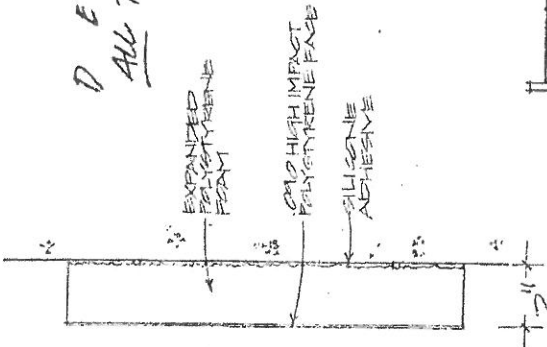 D E
ALL
EXPANDED
POLYSTYRENE
FOAM
.090 HIGH IMPACT
POLYSTYRENE FACE
SILICONE
ADHESIVE